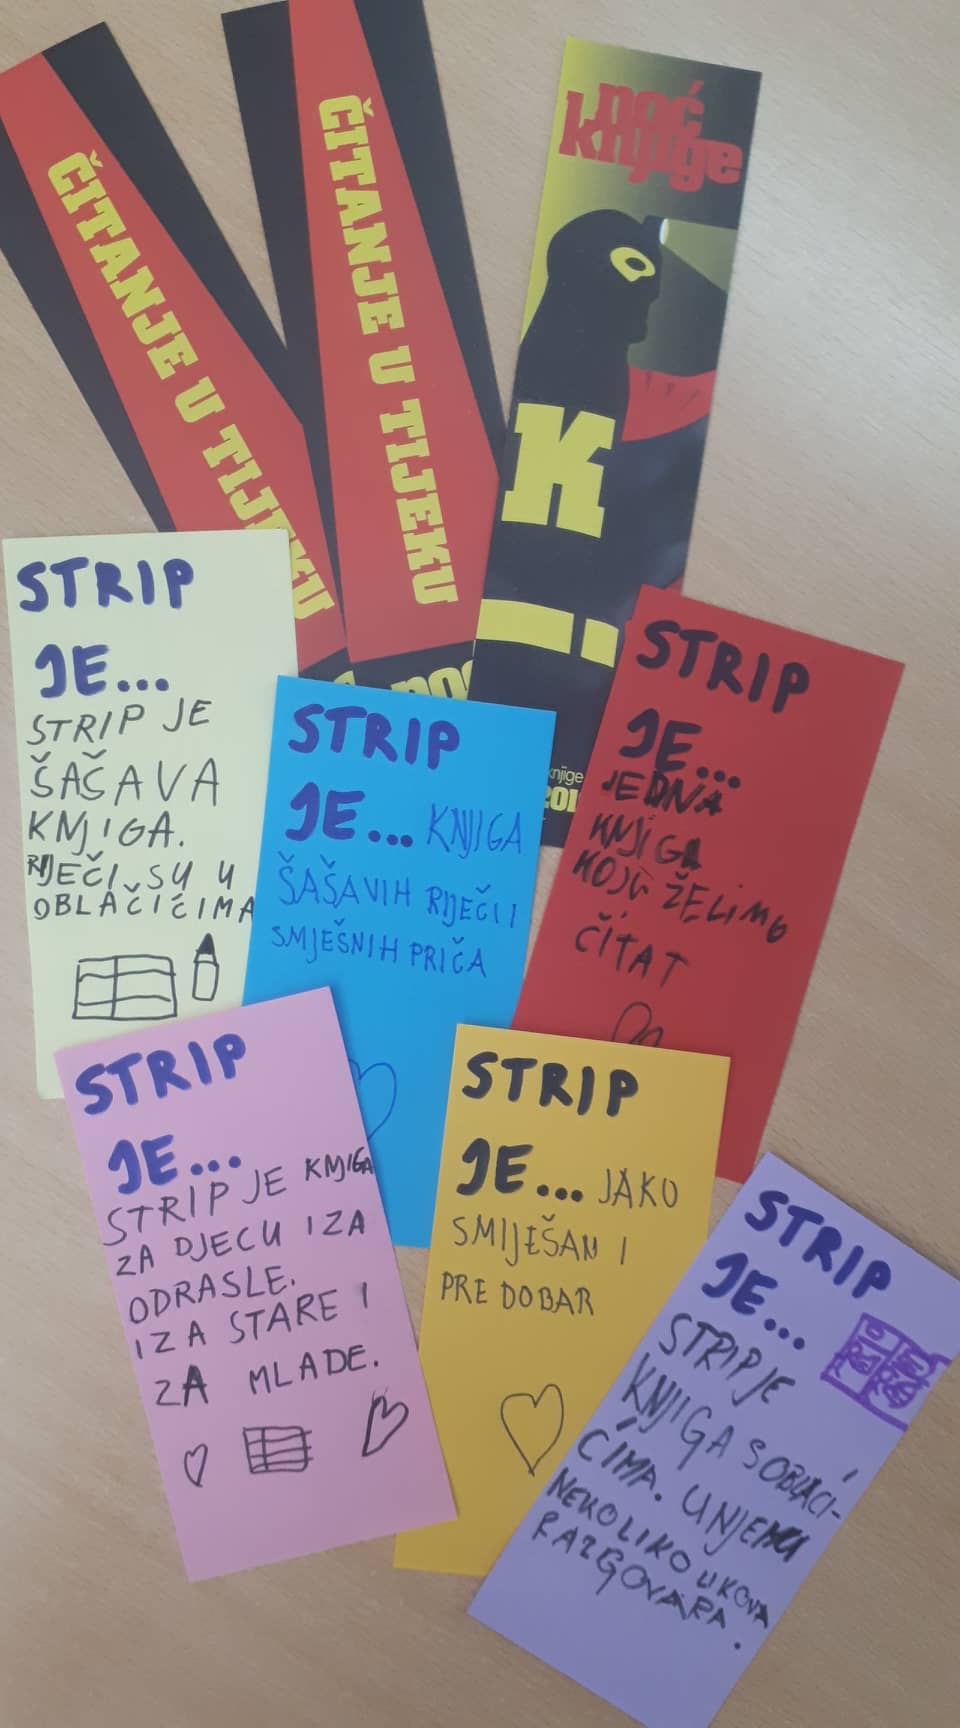 ČITANJE U TIJEKU
ČITANJE U TIJEKU
noć
knjige
K
knjige
201
STRIP
JE...
STRIP JE
ŠAŠAVA
KNJIGA.
RIJEČI SU U
OBLAČIĆIMA
STRIP
JE... KNJIGA
ŠAŠAVIH RIJEČI I
SMJEŠNIH PRIČA
STRIP
JE...
JEDNA
KNJIGA
KOJU ŽELIMO
ČITAT
STRIP
JE...
STRIP JE KNJIGA
ZA DJECU I ZA
ODRASLE.
I ZA STARE I
ZA MLADE.
STRIP
JE... JAKO
SMIJEŠAN I
PRE DOBAR
STRIP
JE...
STRIP JE
KNJIGA S OBLAČI-
ĆIMA. U NJEMU
NEKOLIKO LIKOVA
RAZGOVARA.